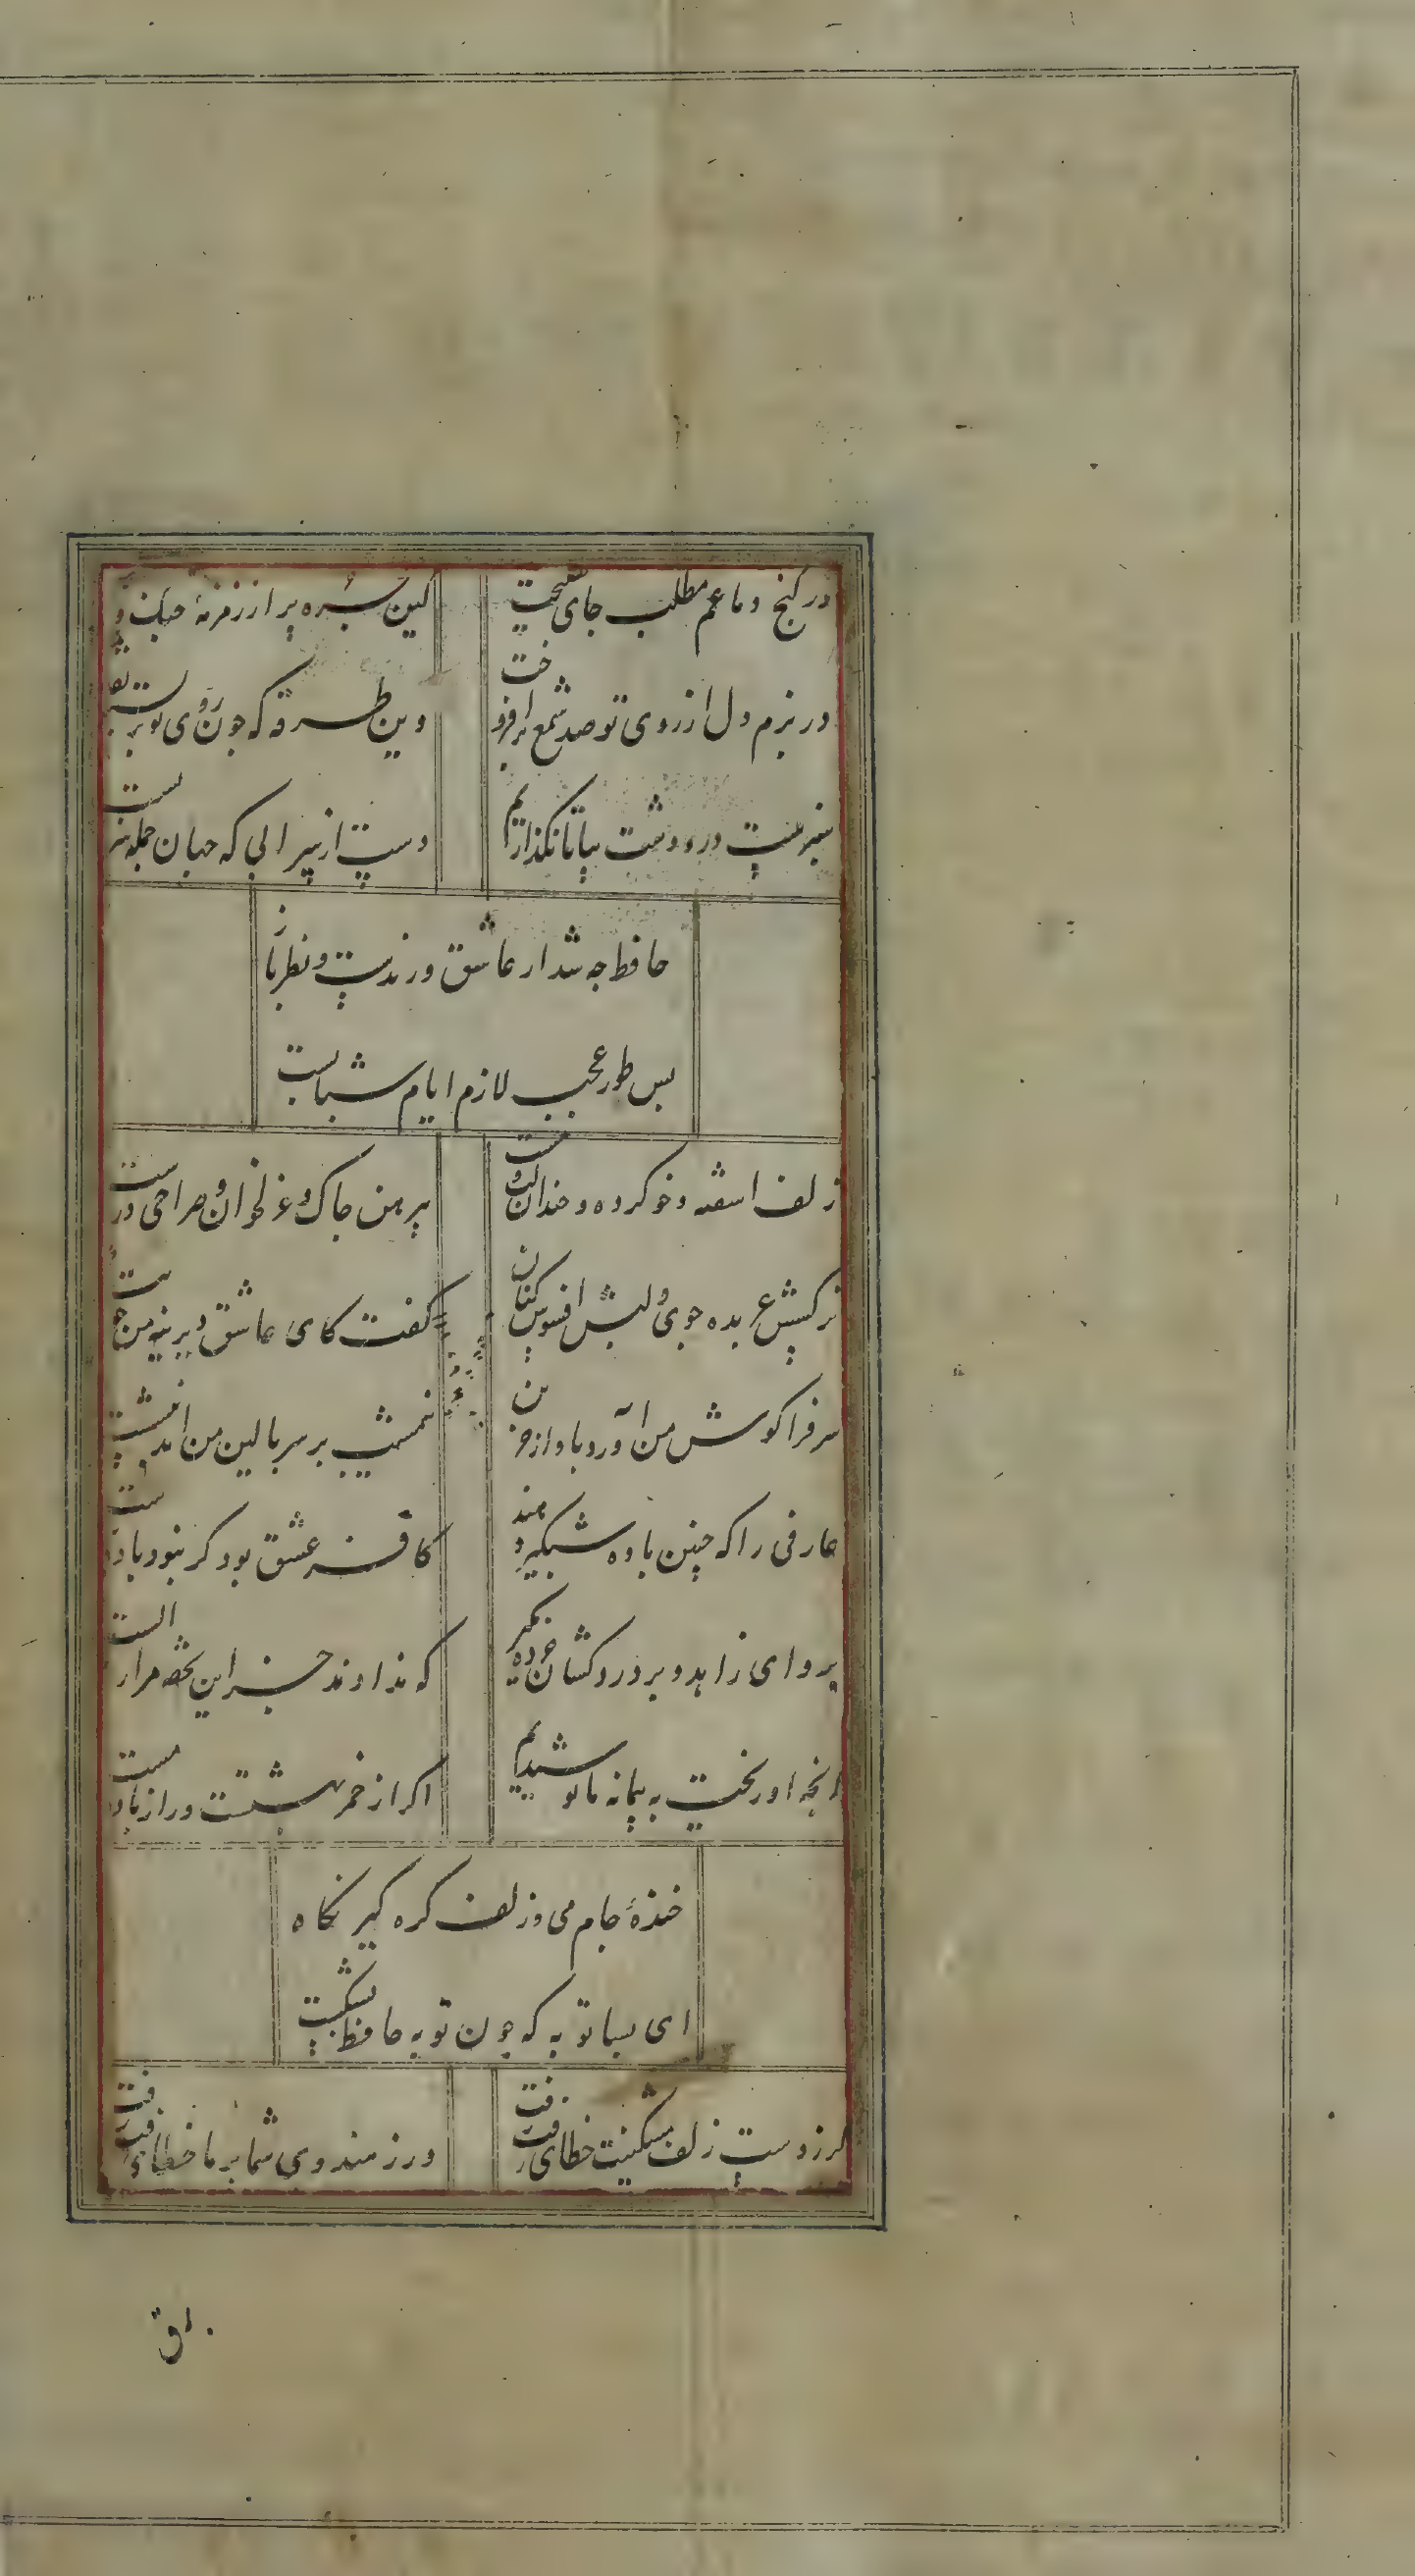 در کنج دماغم مطلب جای نصیحت
کین حجره پر از زمزمهٔ چنک و
در بزم دل از روی تو صد شمع برافروخت
وین طرفه که جون روی تو بر
سبزست در و دشت بیا تا نکذاریم
دست از سر ابی که جهان جمله سر ابست
حافظ جه شد ار عاشق و رندیست و نظرباز
بس طور عجب لازم ایام شبابست
زلف اشفته و خوی کرده و خندان لب و مست
پیرهن جاک و غزلخوان و صراحی در دست
نرکسش عربده جوی و لبش افسوس کنان
کفت کای عاشق دیرینه من
سر فرا کوش من آورد باواز حزین
نیمشب بر سر بالین من امد بنشست
عارفی را که چنین باده شبکیر دهند
کافر عشق بود کر نبود باده
برو ای زاهد و بر دردکشان خرده مکیر
که ندادند جز این تحفه مرا الست
انجه او ریخت به پیمانه ما نوشیدیم
اکر از خمر بهشتست ور از باده مست
خندهٔ جام می و زلف کره کیر نکاه
ای بسا توبه که جون توبه حافظ بشکست
کر ز دست زلف مشکینت خطای رفت رفت
ور ز هندوی شما بر ما خطای رفت رفت